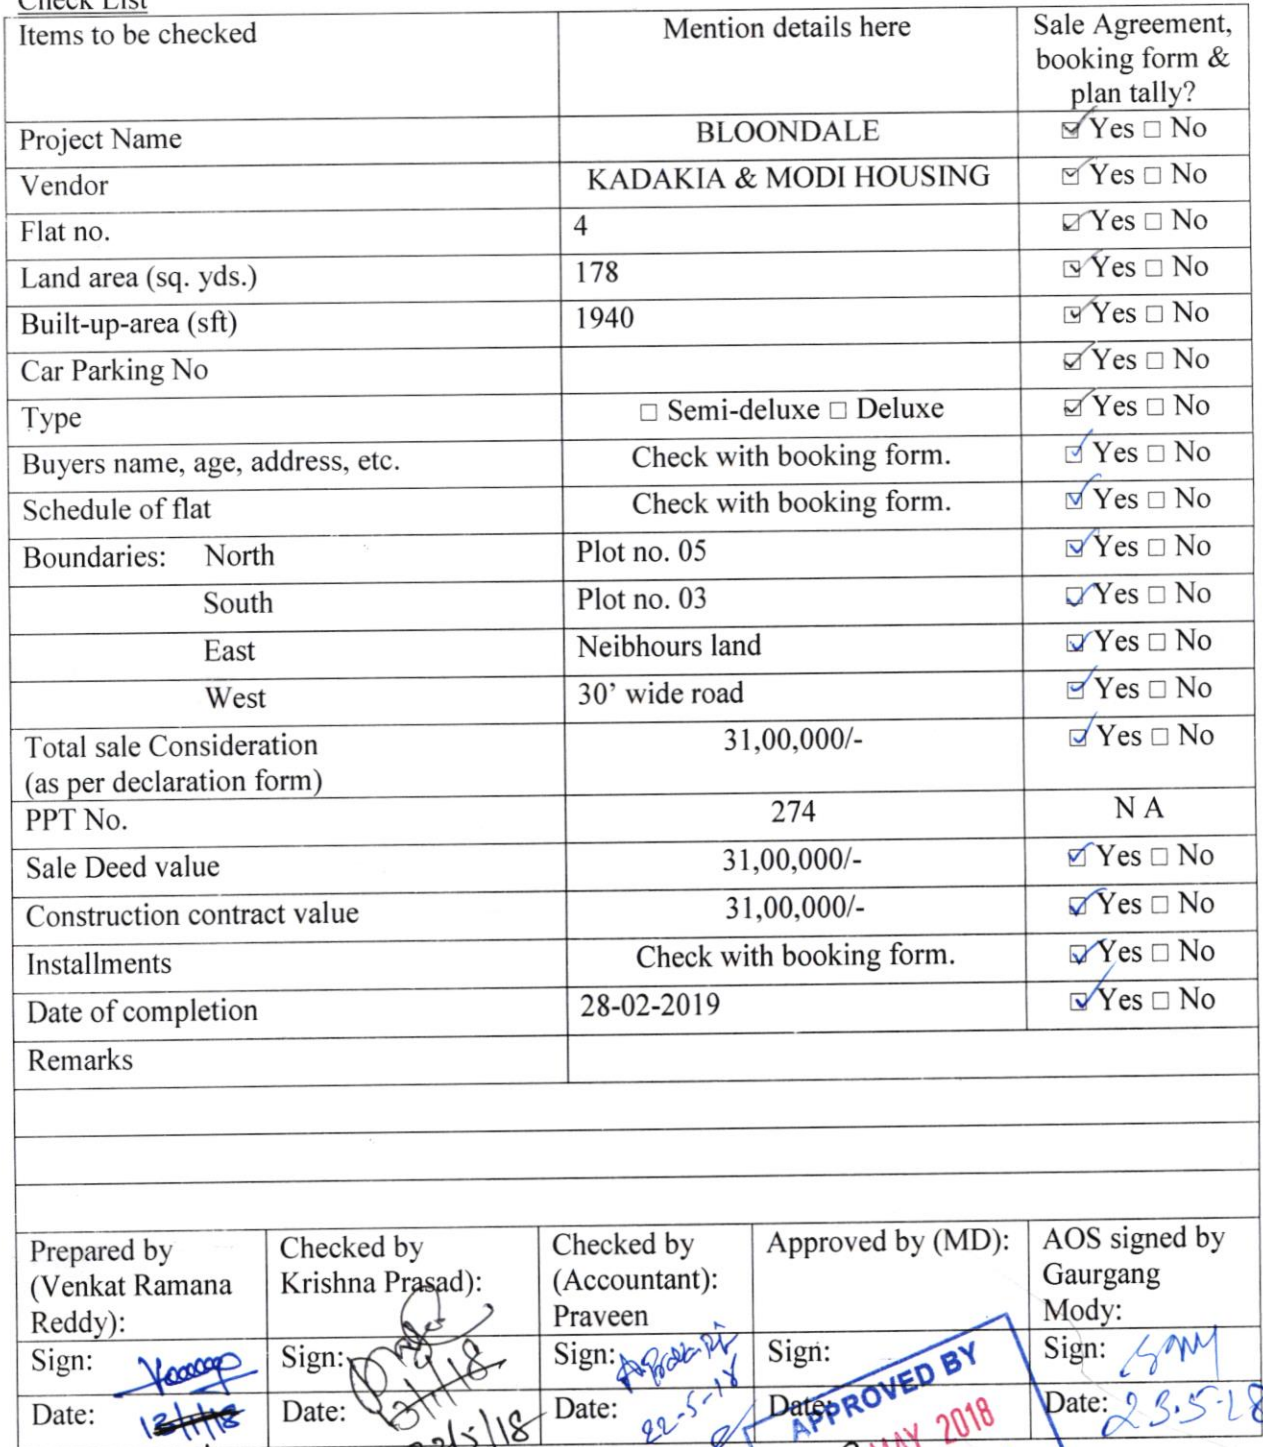 Check List
Items to be checked Mention details here Sale Agreement,
booking form &
plan tally?
Project Name BLOONDALE ☑ Yes ☐ No
Vendor KADAKIA & MODI HOUSING ☑ Yes ☐ No
Flat no. 4 ☑ Yes ☐ No
Land area (sq. yds.) 178 ☑ Yes ☐ No
Built-up-area (sft) 1940 ☑ Yes ☐ No
Car Parking No ☑ Yes ☐ No
Type ☐ Semi-deluxe ☐ Deluxe ☑ Yes ☐ No
Buyers name, age, address, etc. Check with booking form. ☑ Yes ☐ No
Schedule of flat Check with booking form. ☑ Yes ☐ No
Boundaries: North Plot no. 05 ☑ Yes ☐ No
South Plot no. 03 ☑ Yes ☐ No
East Neibhours land ☑ Yes ☐ No
West 30' wide road ☑ Yes ☐ No
Total sale Consideration 31,00,000/- ☑ Yes ☐ No
(as per declaration form)
PPT No. 274 N A
Sale Deed value 31,00,000/- ☑ Yes ☐ No
Construction contract value 31,00,000/- ☑ Yes ☐ No
Installments Check with booking form. ☑ Yes ☐ No
Date of completion 28-02-2019 ☑ Yes ☐ No
Remarks
Prepared by
(Venkat Ramana
Reddy):
Checked by
Krishna Prasad):
Checked by
(Accountant):
Praveen
Approved by (MD):
AOS signed by
Gaurgang
Mody:
Sign: Sign: Sign: Sign: Sign:
Date: 13/1/18 Date: 13/1/18 Date: 22-5-18 Date: Date: 23.5.18
/5/18
APPROVED BY
MAY 2018